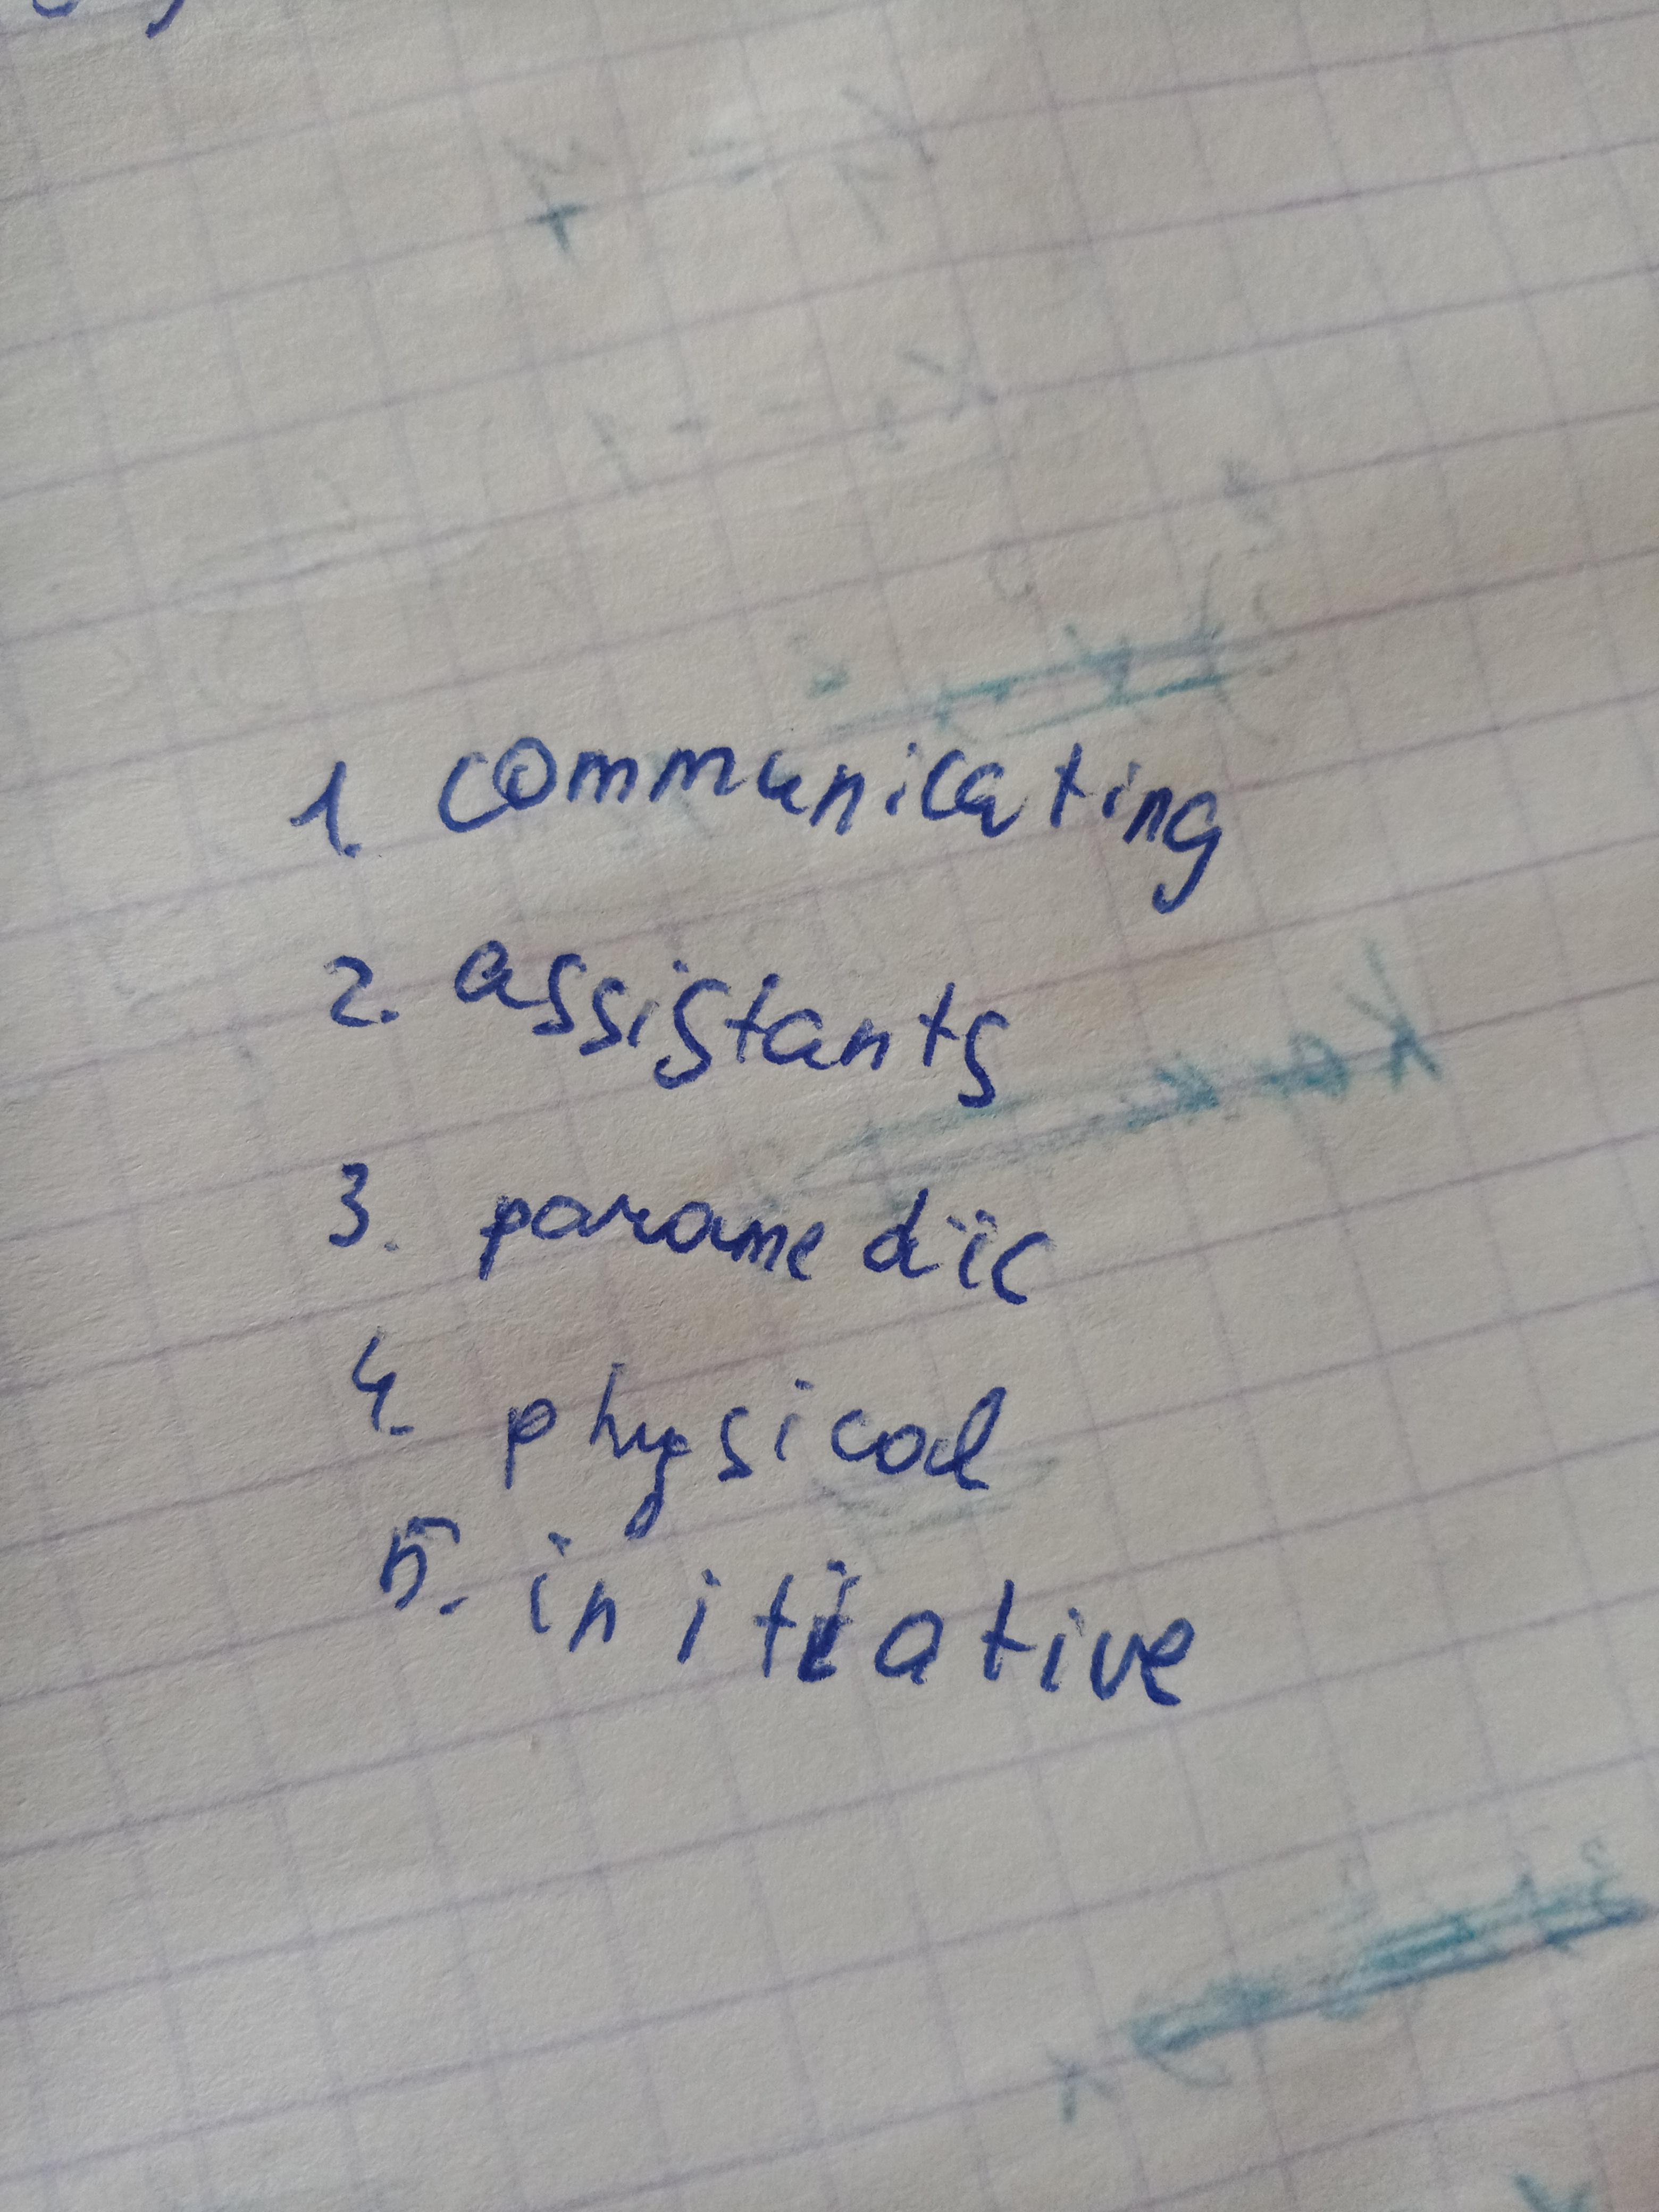 1. communicating
2. assistants
3. paramedic
4. physical
5. initiative